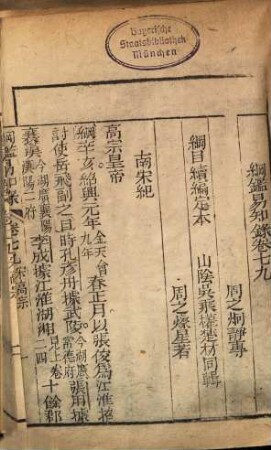 Bayerische
Staatsbibliothek
München
綱鑑易知錄卷七九
周之炯靜專
綱目續編定本 山陰吳乘權楚材同輯
周之燦星若
南宋紀
高宗皇帝
綱辛亥紹興元年金天會九年春正月以張俊為江淮招
討使岳飛副之目時孔彥舟據武陵今湖廣常德府張用據
襄漢今湖廣襄陽漢陽二府李成據江淮湖湘見上卷二四十餘郡
綱鑑易知錄 卷七九 宋高宗